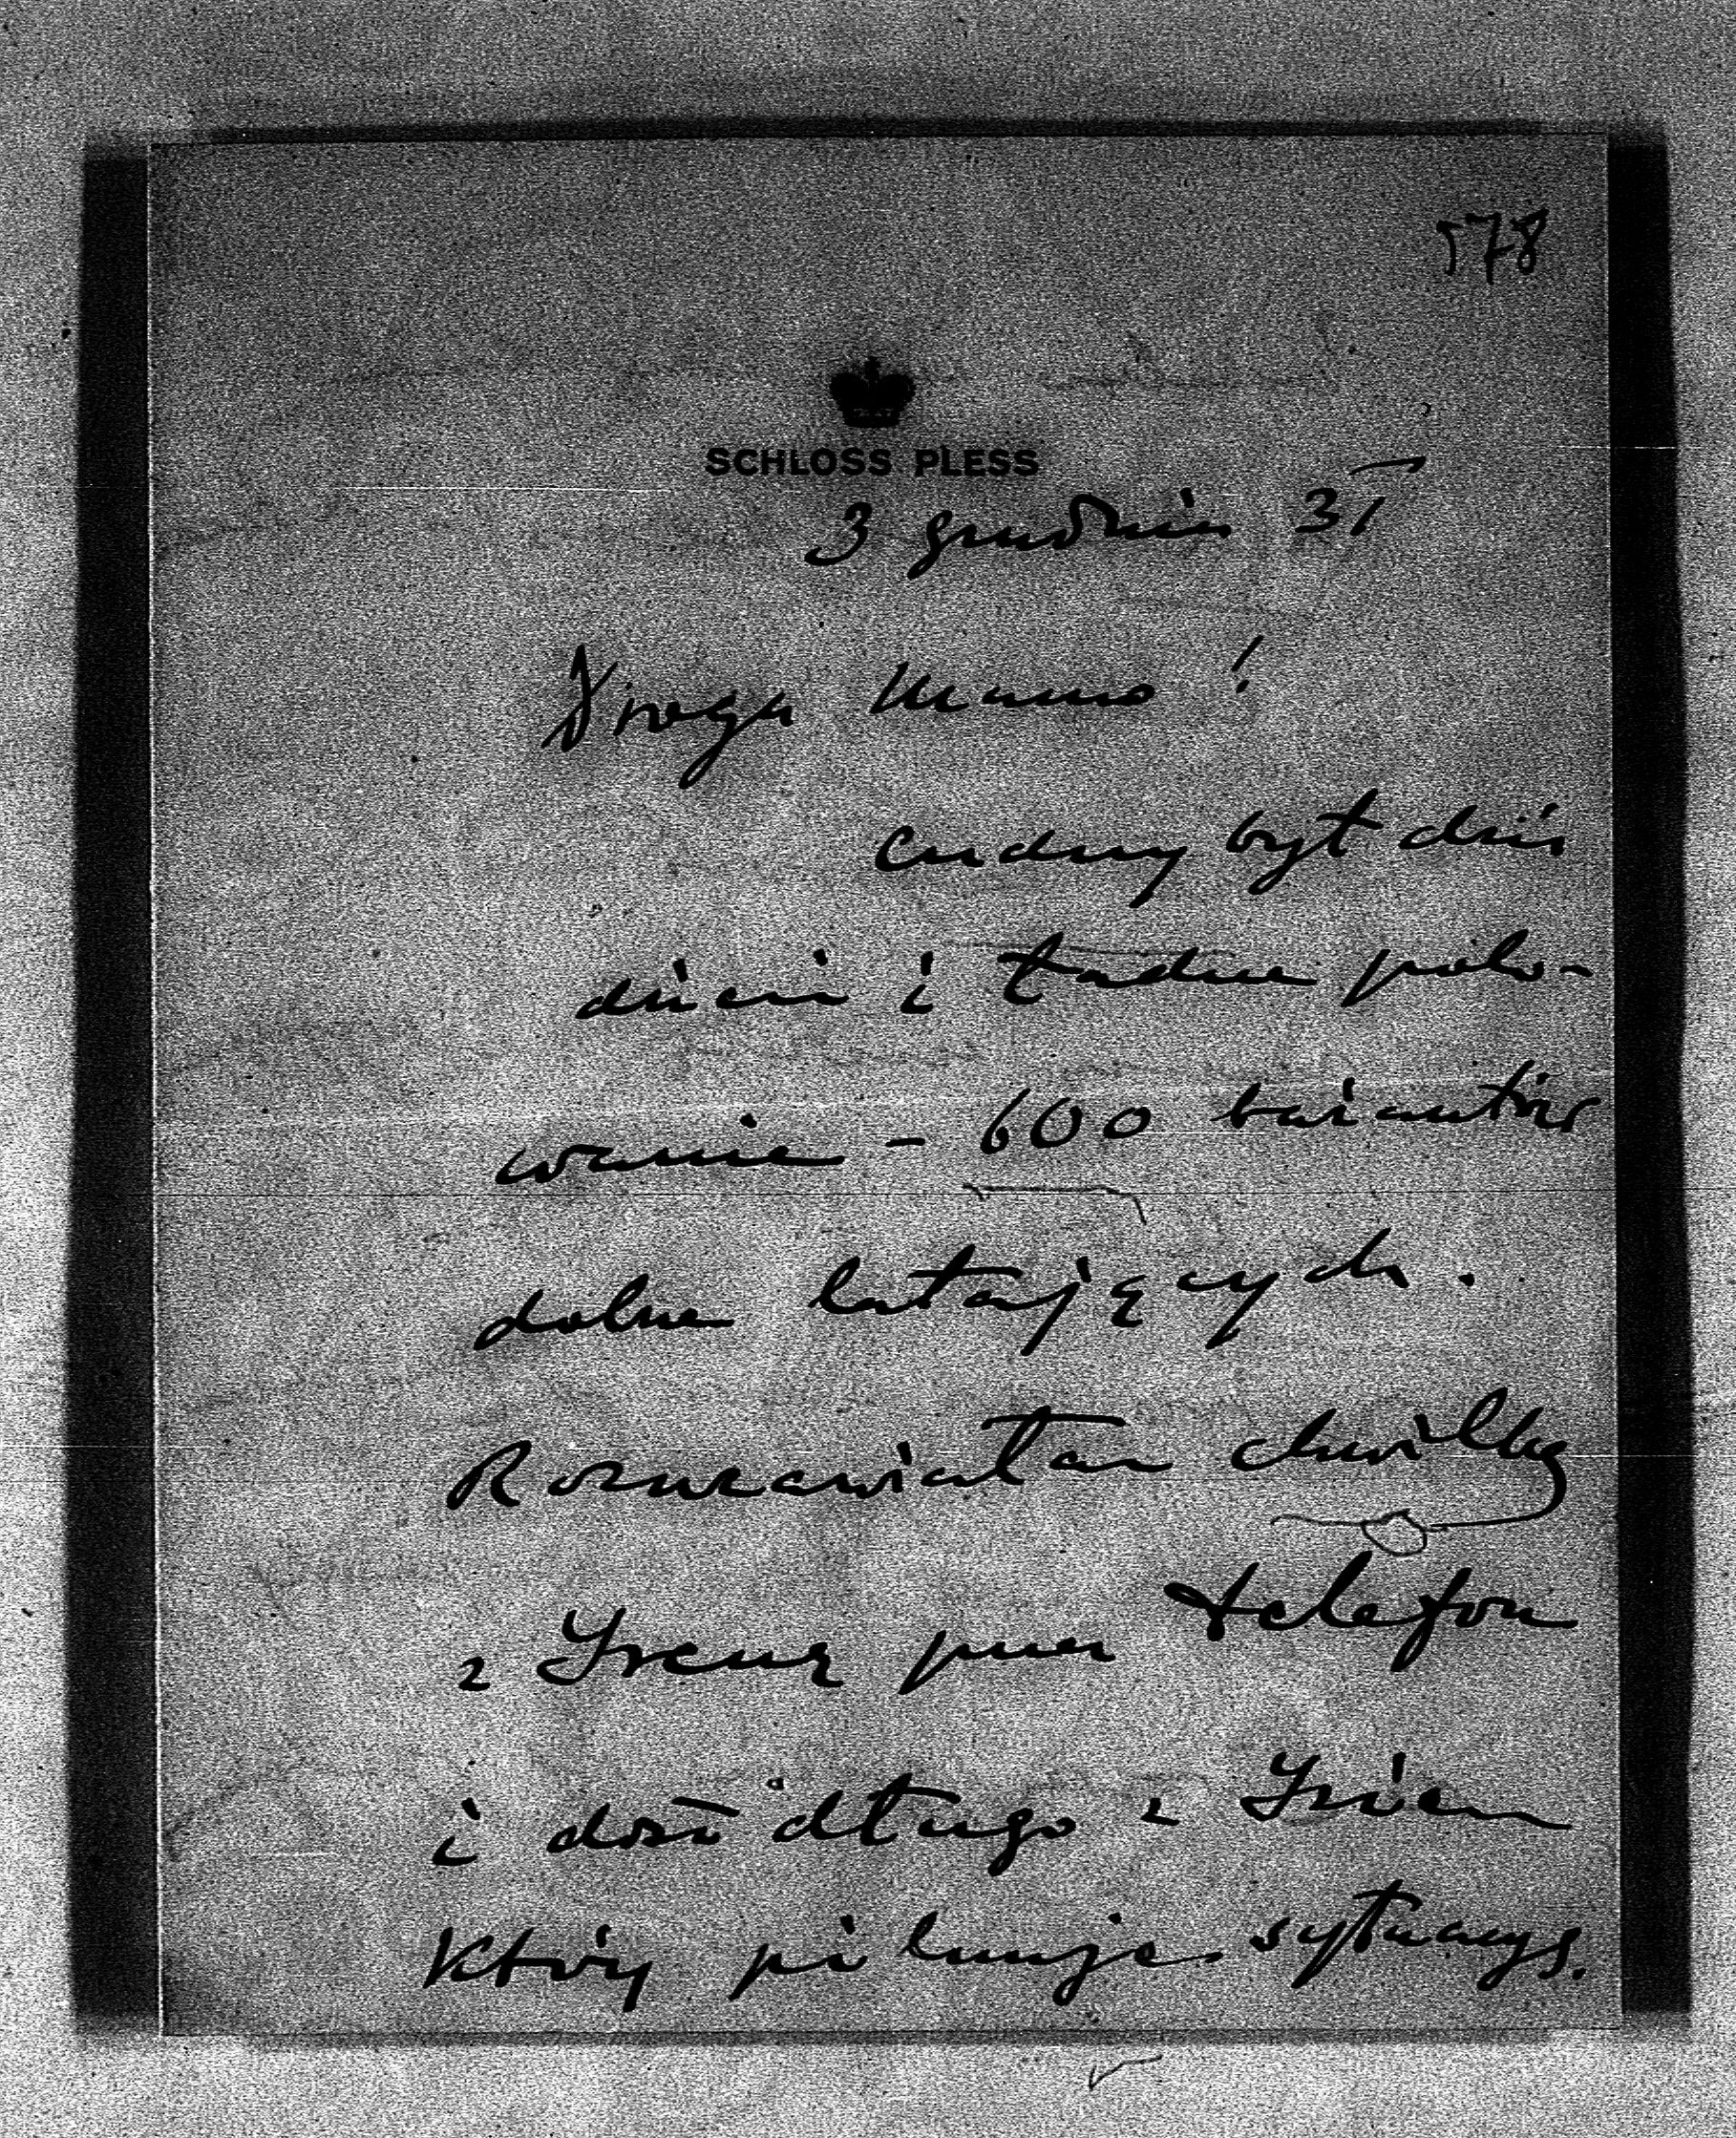 578
SCHLOSS PLESS
3 grudnia 35
Droga Mamo!
Cudny był dziś
dzień i ładne polo-
wanie - 600 bażantów
dobrze latających.
Rozmawiałam chwilkę
z Ireną przez telefon
i dość długo z
który pilnuje sytuacyę.